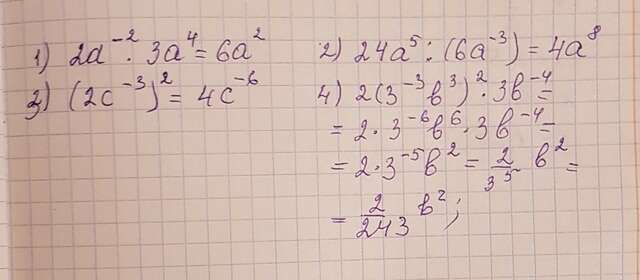 1) 2a⁻² · 3a⁴ = 6a²
2) 24a⁵ : (6a⁻³) = 4a⁸
3) (2c⁻³)² = 4c⁻⁶
4) 2(3⁻³b³)² · 3b⁻⁴ =
= 2 · 3⁻⁶b⁶ · 3b⁻⁴ =
= 2 · 3⁻⁵b² = 2/3⁵ b² =
= 2/243 b²;